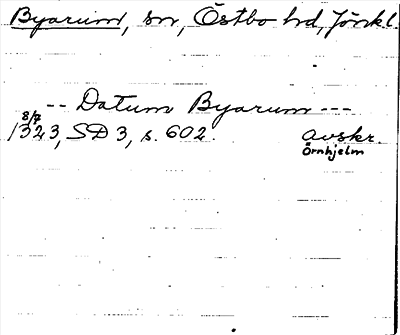 Byarum, sn, Östbo hd, Jönkl.
-- Datum Byarum ---
8/7
1323, SD 3, s. 602. avskr.
Örnhjelm